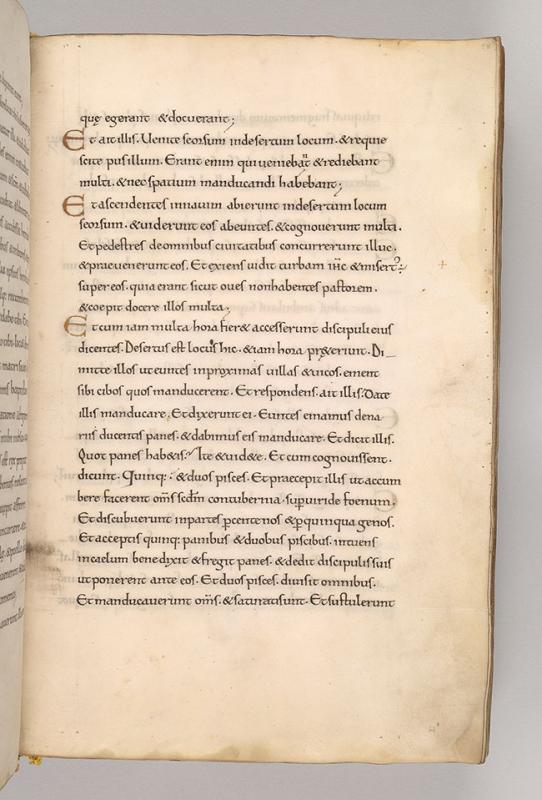 quę egerant & docuerant;
Et ait illis. Uenite seorsum indesertum locum. & requie
scite pusillum. Erant enim qui ueniebāt & rediebant
multi. & nec spatium manducandi habebant;
Et ascendentes innauim abierunt indesertum locum
seorsum. & uiderunt eos abeuntes. & cognouerunt multi.
Et pedestres deomnibus ciuitatibus concurrerunt illuc.
& praeuenerunt eos. Et exiens uidit turbam ihc & misert᷒;
super eos. quia erant sicut oues nonhabentes pastorem.
& coepit docere illos multa;
Et cum iam multa hora fier& accesserunt discipuli eius
dicentes. Desertus est locus hic. & iam hora pręteriuit. Di
mitte illos ut euntes inproximas uillas & uicos. ement
sibi cibos quos manducerent. Et respondens. ait illis. Date
illis manducare. Et dixerunt ei. Euntes emamus dena
riis ducentis panes. & dabimus eis manducare. Et dicit illis.
Quot panes hab&is? Ite & uid&e. Et cum cognouissent.
dicunt. Quinq; & duos pisces. Et praecepit illis ut accum
bere facerent om̄s scd̄m contubernia. sup uiride foenum.
Et discubuerunt inpartes ꝑcentenos & ꝑquinquagenos.
Et acceptis quinq; panibus & duobus piscibus. intuens
incaelum benedixit & fregit panes. & dedit discipulis suis
ut ponerent ante eos. Et duos pisces. diuisit omnibus.
Et manducauerunt om̄s. & saturati sunt. Et sustulerunt